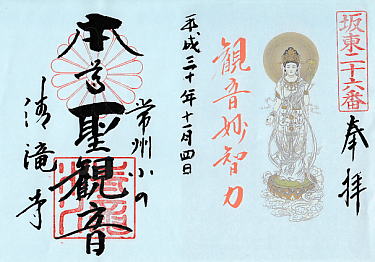 坂東二十六番
奉拝
観音妙智力
平成三十年十一月四日
常州小の
本尊聖観音
清滝寺